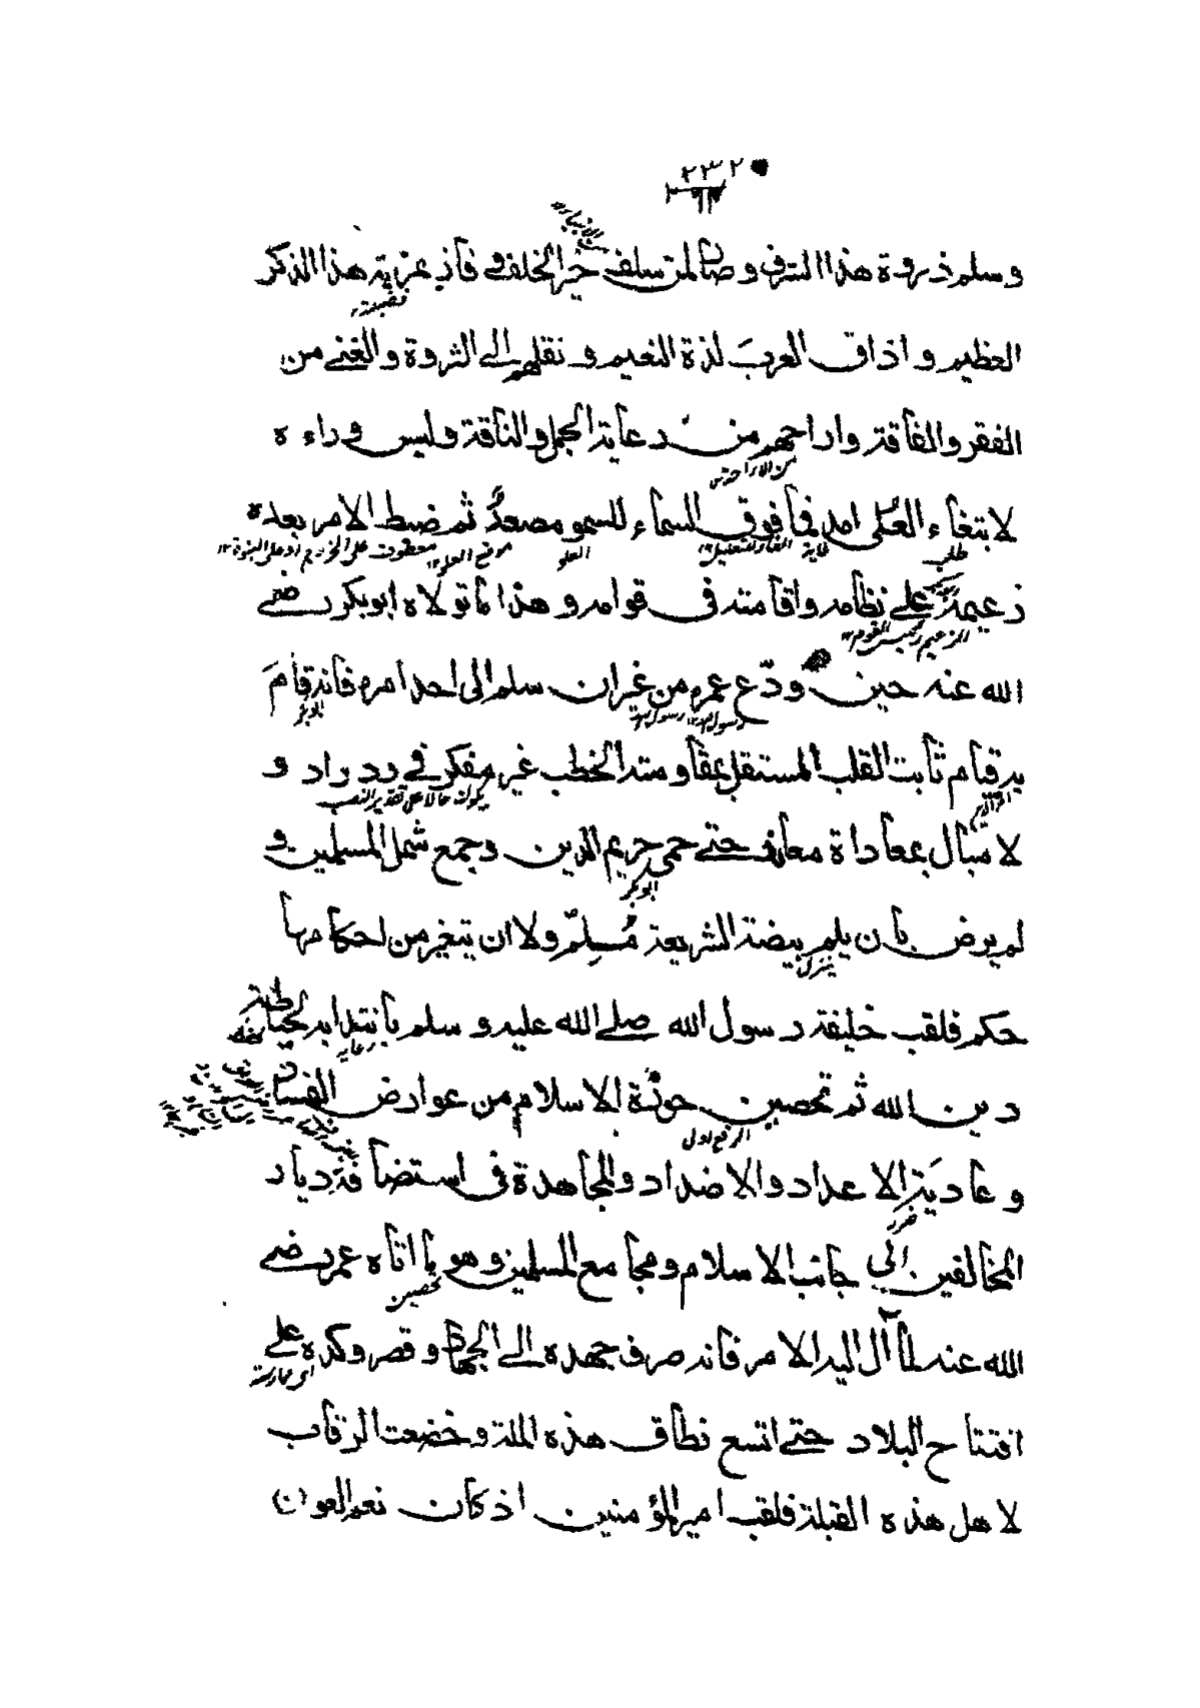 ٢٣٢
وسلم ذروة هذا الشرف وصار لمن سلف خير الخلف وفاز بمزية هذا الذكر
فضيلة
العظيم واذاق العربَ لذة النعيم ونقلهم الى الثروة والغنى من
الفقر والفاقة واراحهم من رعاية الجمل والناقة وليس وراءه
من الاراحة
لابتغاء العُلى امد فما فوق السماء للسمو مصعدٌ ثم ضبط الامر بعده
طلب غاية الفاء للتعليل العلو موضع العلو معطوف على
زعيمة على نظامه واقامته فى قوامه وهذا ما تولاه ابوبكر رضى
الزعيم رئيس القوم
الله عنه حين ودّع عمره من غير ان سلم الى احد امره فانه قامَ
رسول الله رسول الله ابوبكر
به قيام ثابت القلب المستقل بمقاومته الخطب غير مفكر فى رد راد و
يكون حالا على تقدير النصب
لا مبال بمعاداة معاد حتى حمى حريم الدين وجمع شمل المسلمين و
ابوبكر
لم يرض بان يلم ببيضة الشريعة مُسلِمٌ ولا ان يتغير من احكامها
ينزل
حكم فلقب خليفة رسول الله صلى الله عليه وسلم بانتدابه لحياطة
رعاية حفظ
دين الله ثم تحصين حوزة الاسلام من عوارض الفساد
وعاديَة الاعداد والاضداد والمجاهدة فى استضافة ديار
ضرر
المخالفين الى جانب الاسلام ومجامع المسلمين وهو ما اتاه عمر رضى
تحصين
الله عنه لما آل اليه الامر فانه صرف جهده الى الجهاد وقصر وكده على
اى ممارسته
افتتاح البلاد حتى اتسع نطاق هذه الملة وخضعت الرقاب
لاهل هذه القبلة فلقب امير المؤمنين اذ كان نعم العون